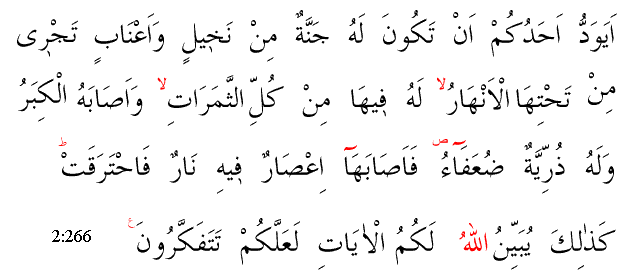 اَيَوَدُّ اَحَدُكُمْ اَنْ تَكُونَ لَهُ جَنَّةٌ مِنْ نَخ۪يلٍ وَاَعْنَابٍ تَجْر۪ى
مِنْ تَحْتِهَا الْاَنْهَارُۙ لَهُ ف۪يهَا مِنْ كُلِّ الثَّمَرَاتِۙ وَاَصَابَهُ الْكِبَرُ
وَلَهُ ذُرِّيَّةٌ ضُعَفَٓاءُۖ فَاَصَابَهَٓا اِعْصَارٌ ف۪يهِ نَارٌ فَاحْتَرَقَتْۜ
كَذٰلِكَ يُبَيِّنُ اللّٰهُ لَكُمُ الْاٰيَاتِ لَعَلَّكُمْ تَتَفَكَّرُونَۚ 2:266